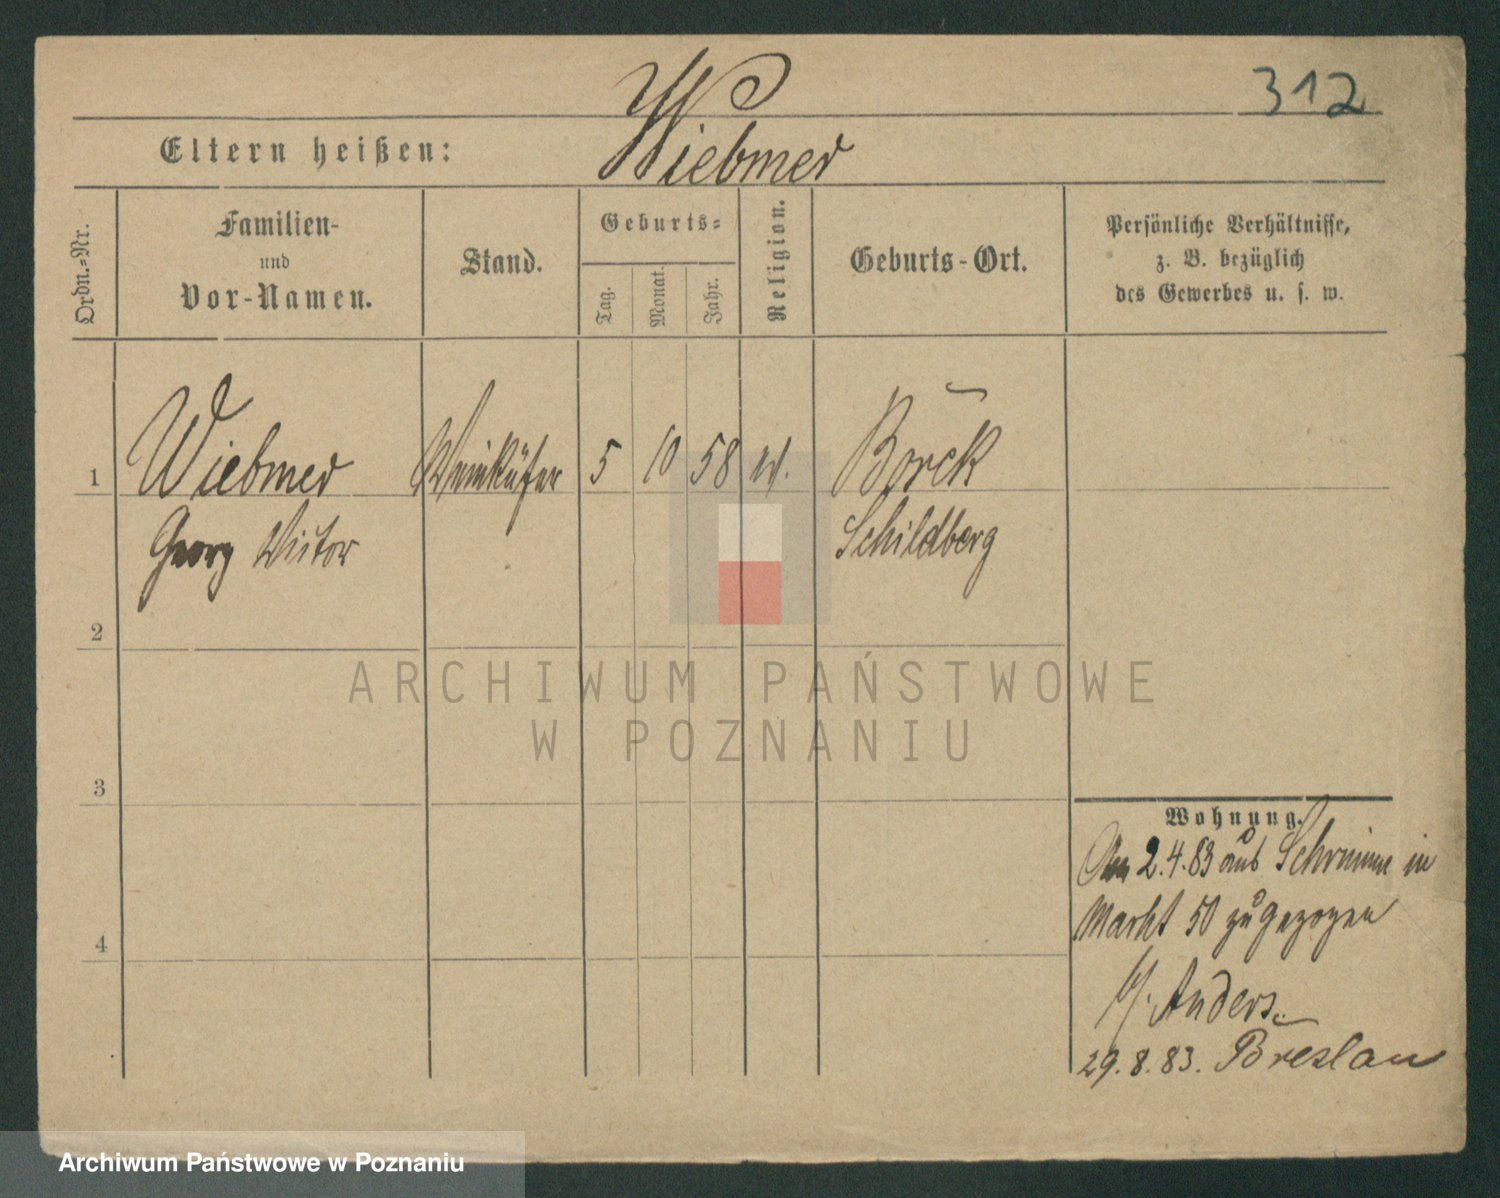 312
Wiebmer
Eltern heißen:
Ordn.-Nr.
Familien-
und
Vor-Namen.
Stand.
Geburts-
Tag.
Monat.
Jahr.
Religion.
Geburts-Ort.
Persönliche Verhältnisse,
z. B. bezüglich
des Gewerbes u. s. w.
1 Wiebmer Weinküfer 5 10 58 Borek
Georg Victor Schildberg
2
ARCHIWUM PAŃSTWOWE
W POZNANIU
3
Wohnung.
Am 2.4.83 aus Schrimm in
Markt 50 zugezogen
4
b/. Anders.
29.8.83. Breslau
Archiwum Państwowe w Poznaniu